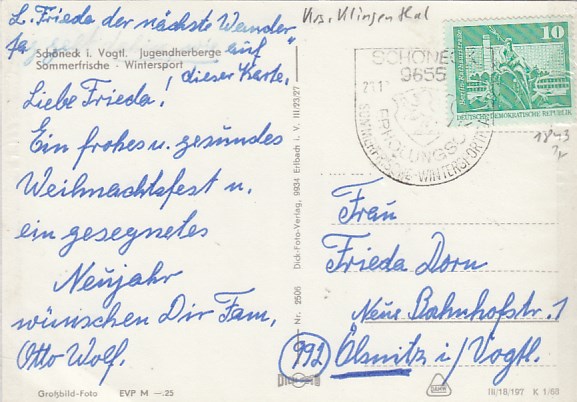 L. Frieda der nächste Wander
auf
dieser Karte,
Schöneck i. Vogtl. Jugendherberge
Sommerfrische - Wintersport
Liebe Frieda!
Ein frohes u. gesundes
Weihnachtsfest u.
ein gesegnetes
Neujahr
wünschen Dir Fam.
Otto Wolf.
Großbild-Foto EVP M —.25
Nr. 2506 Dick-Foto-Verlag, 9934 Erlbach i. V. III/23/27
Krs. Klingenthal
SCHÖNECK
9655
ERHOLUNGSORT
WINTERSPORT
10
DEUTSCHE DEMOKRATISCHE REPUBLIK
1843
Frau
Frieda Dorn
Neue Bahnhofstr. 1
992 Ölsnitz i/Vogtl.
III/18/197 K 1/68